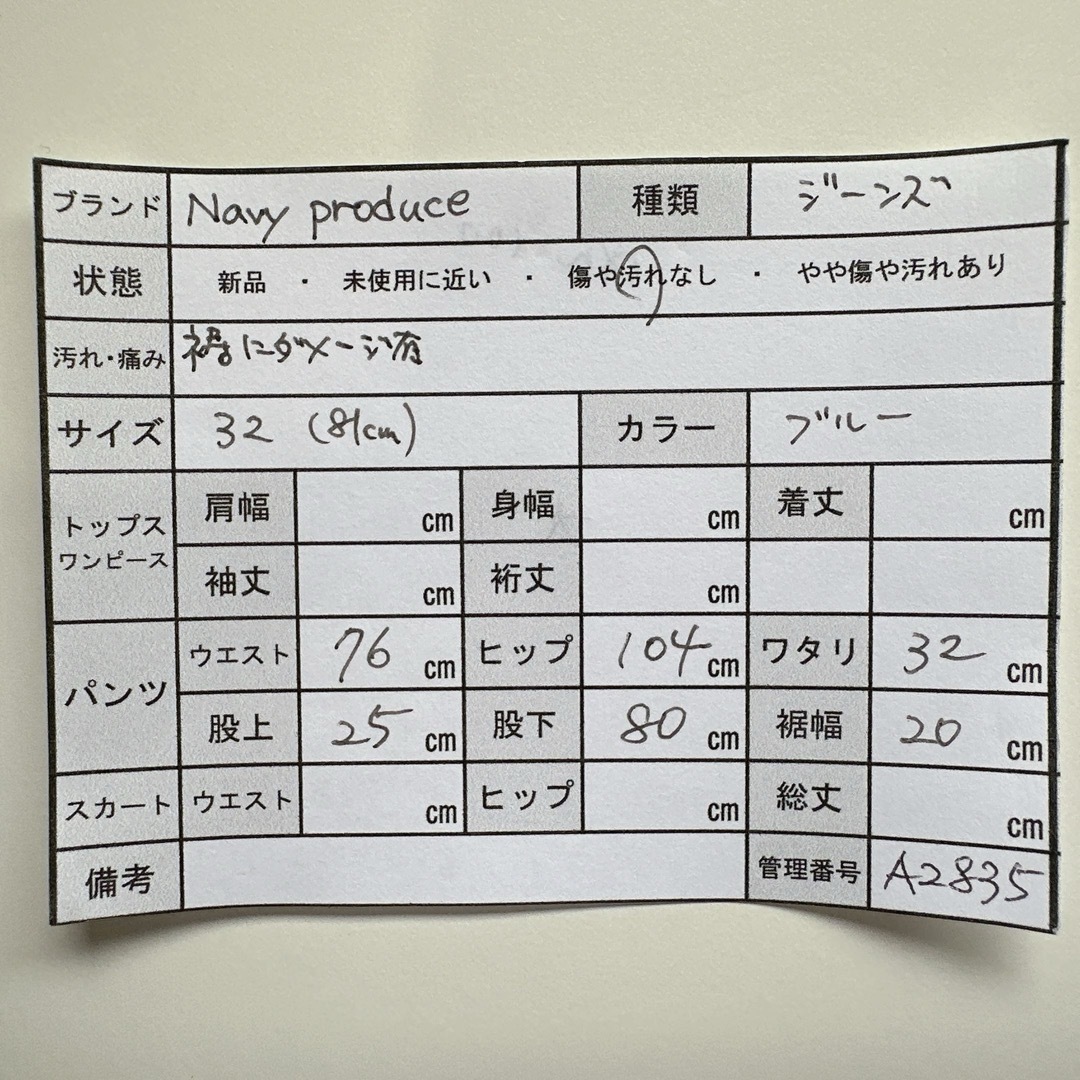 ブランド Navy produce 種類 ジーンズ
状態 新品 ・ 未使用に近い ・ 傷や汚れなし ・ やや傷や汚れあり
汚れ・痛み にダメージ有
サイズ 32 (81cm) カラー ブルー
トップス
ワンピース
肩幅 cm 身幅 cm 着丈 cm
袖丈 cm 裄丈 cm
パンツ
ウエスト 76 cm ヒップ 104 cm ワタリ 32 cm
股上 25 cm 股下 80 cm 裾幅 20 cm
スカート ウエスト cm ヒップ cm 総丈 cm
備考 管理番号 A2835